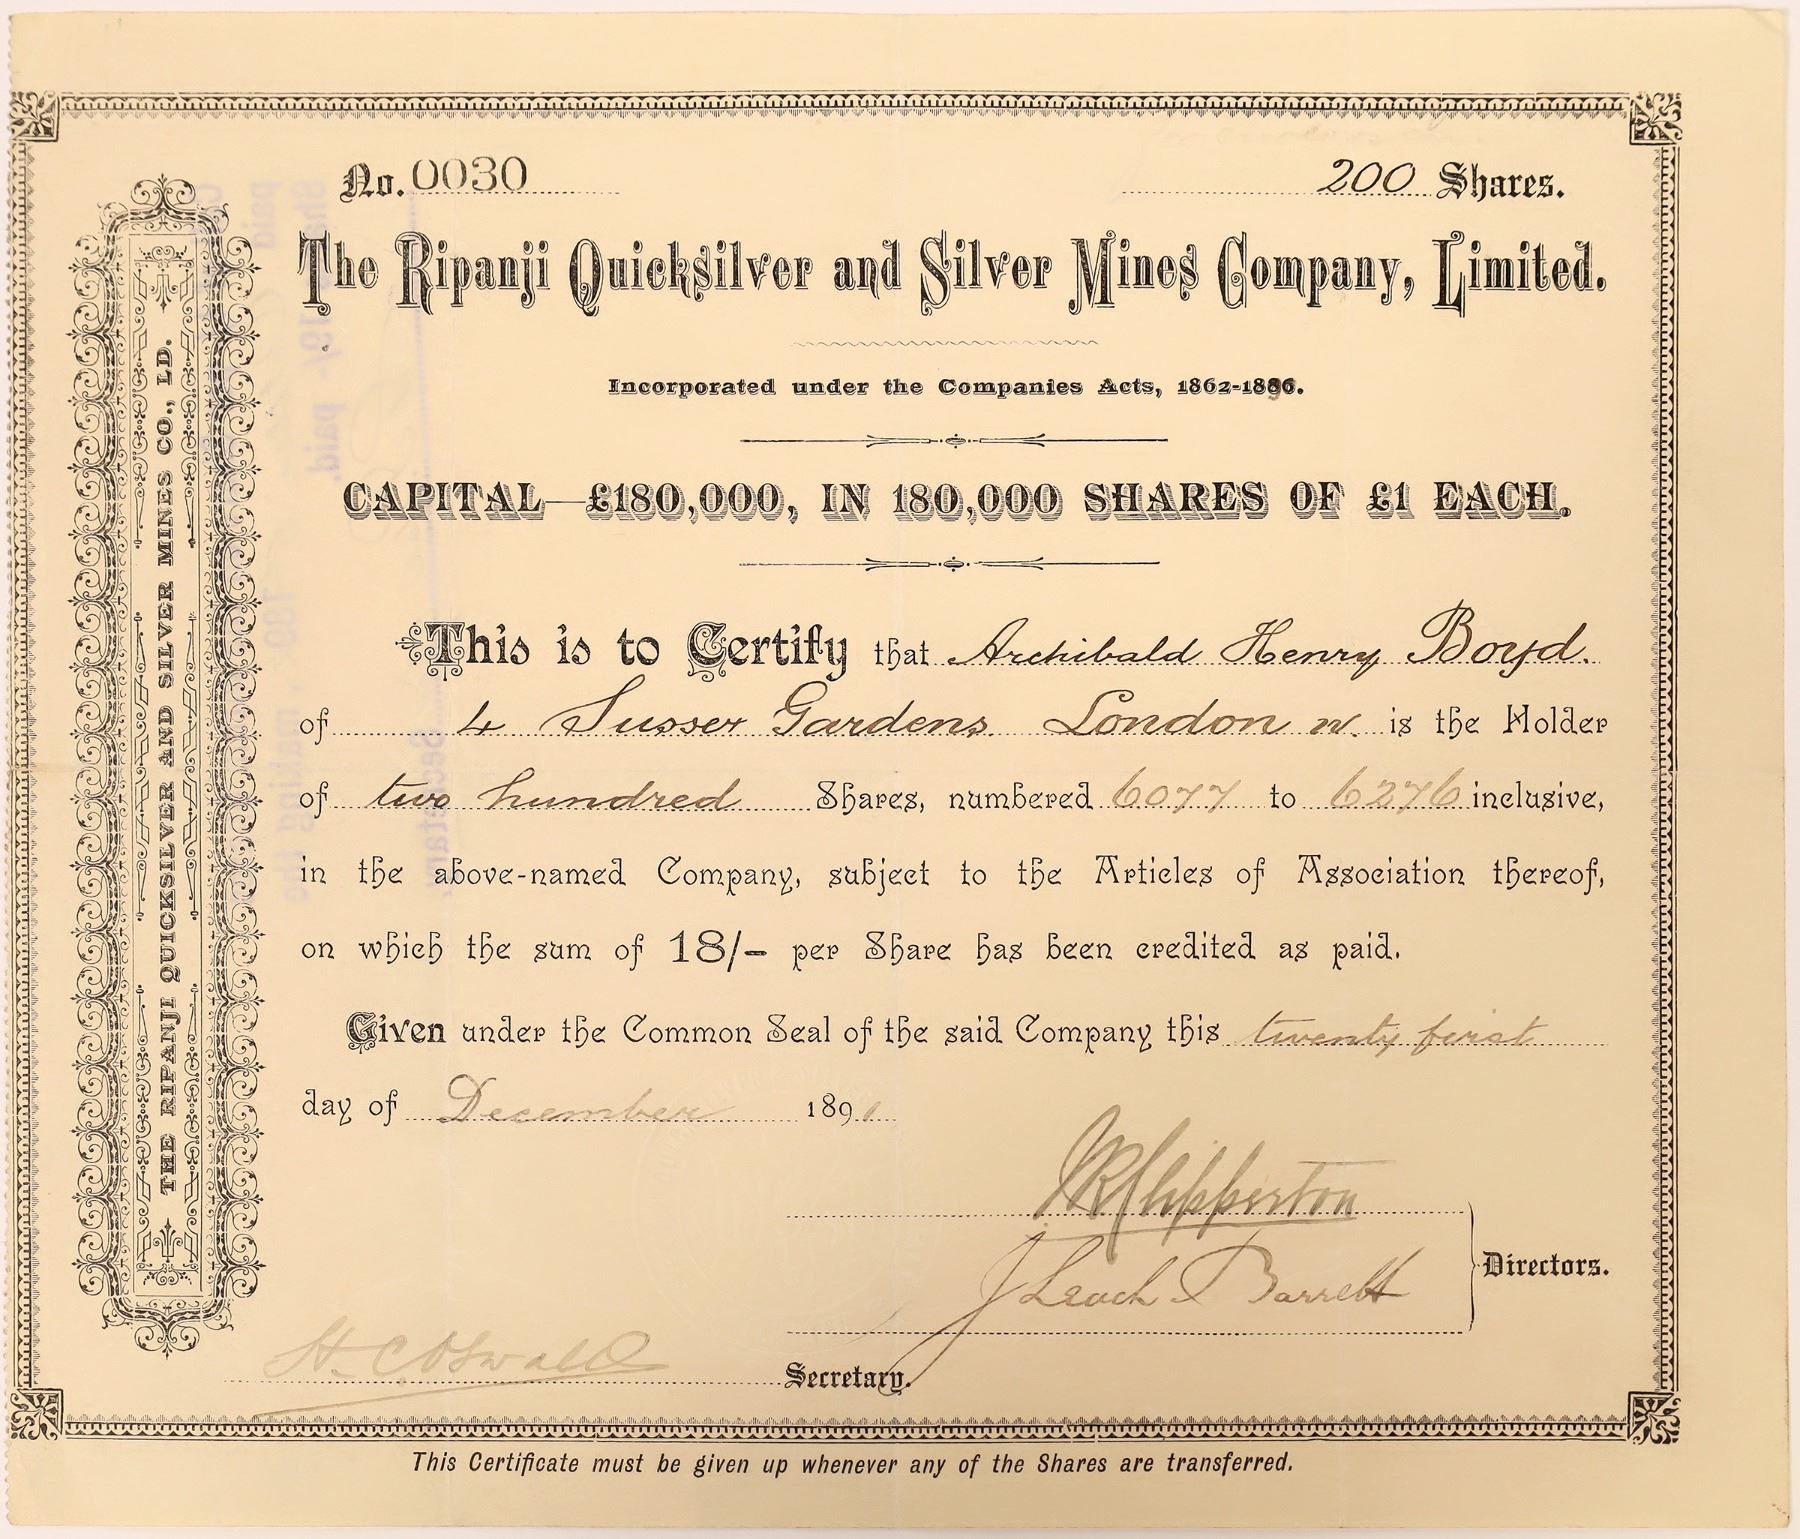 No. 0030
200 Shares.
The Ripanji Quicksilver and Silver Mines Company, Limited.
Incorporated under the Companies Acts, 1862-1890.
CAPITAL—£180,000, IN 180,000 SHARES OF £1 EACH.
This is to Certify that Archibald Henry Boyd.
of 4 Sussex Gardens. London W. is the Holder
of two hundred Shares, numbered 6077 to 6276 inclusive,
in the above-named Company, subject to the Articles of Association thereof,
on which the sum of 18/- per Share has been credited as paid.
Given under the Common Seal of the said Company this twenty first
day of December 1891
Clipperton
J Leach Barrett
Directors.
H. C. Oswald Secretary.
This Certificate must be given up whenever any of the Shares are transferred.
THE RIPANJI QUICKSILVER AND SILVER MINES CO., LD.